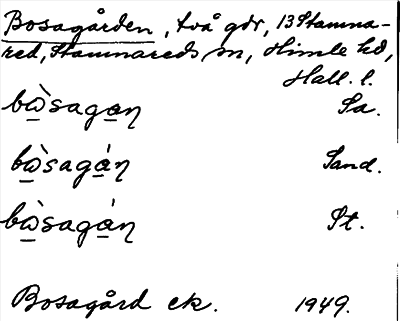 Bosagården, två gdr, 13 Stamna-
red, Stamnareds sn, Himle hd,
Hall. l.
bὼ̲saga̲ꞑ Sa.
bὼ̲sagá̲ꞑ Sand.
bὼ̲sagá̲ꞑ St.
Bosagård ek. 1949.